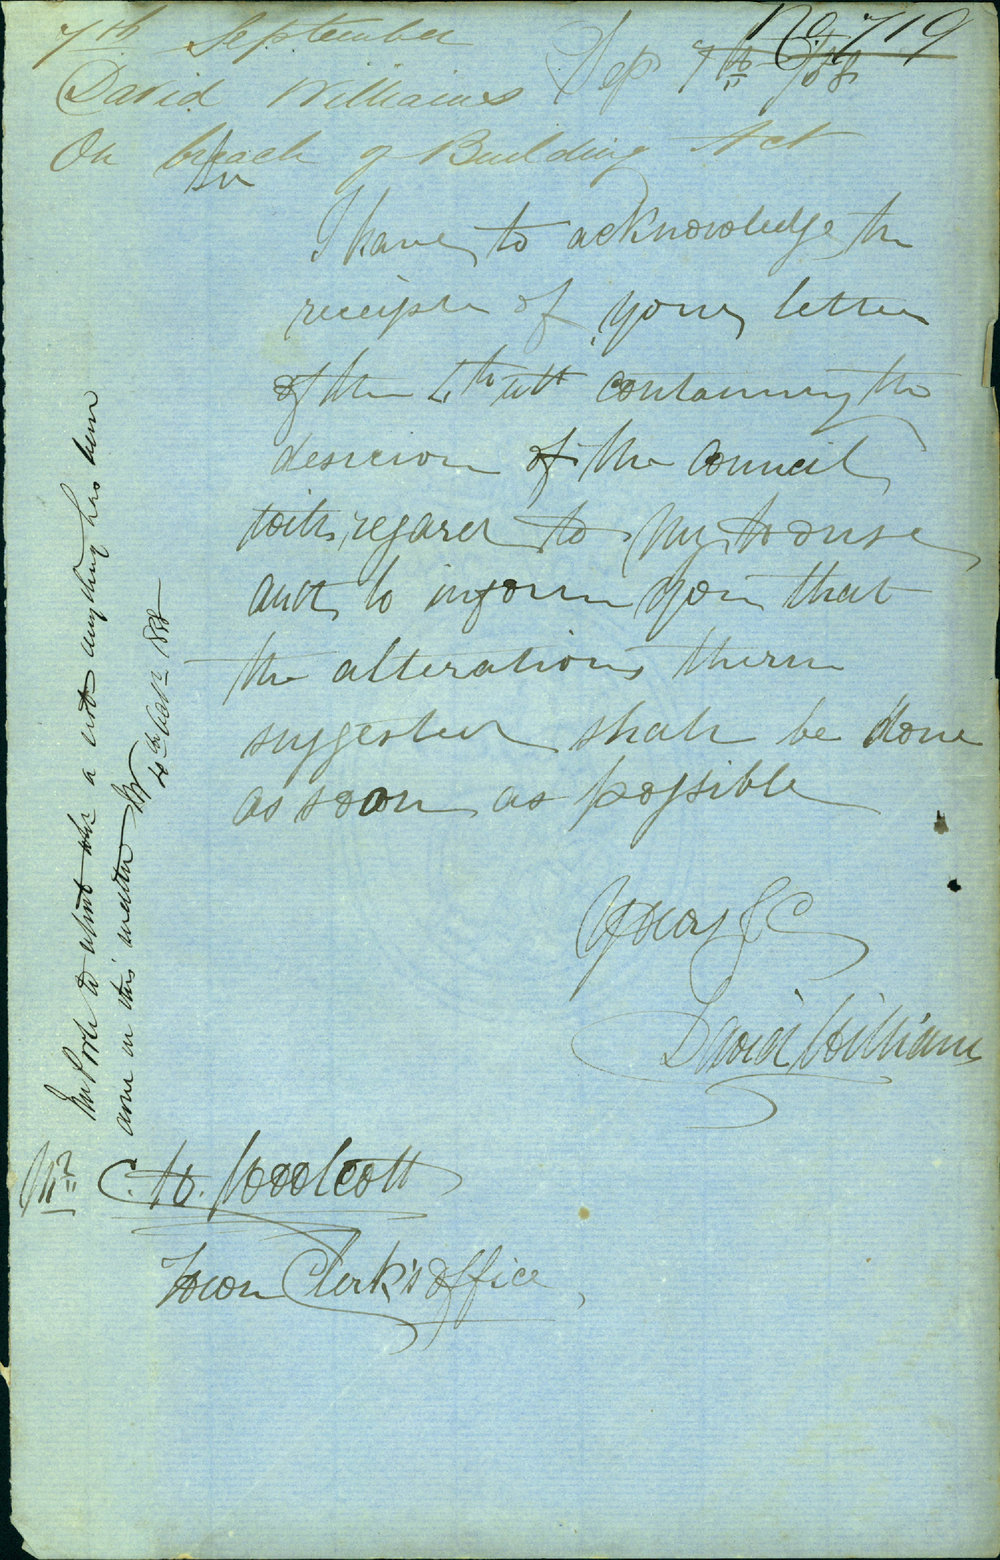 No 719
7th September
David Williams
On breach of Building Act
Sep 7th 1858
Sir
I have to acknowledge the
receipte of your letter
of the 4th ult containing the
descision of the Council
with regard to My House
and to inform you that
the alterations therin
suggested shall be done
as soon as possible
Yours &C
David Williams
Mr C. H. Woolcott
Town Clerk's Office
to report whether or not anything has been
done in this matter
1858